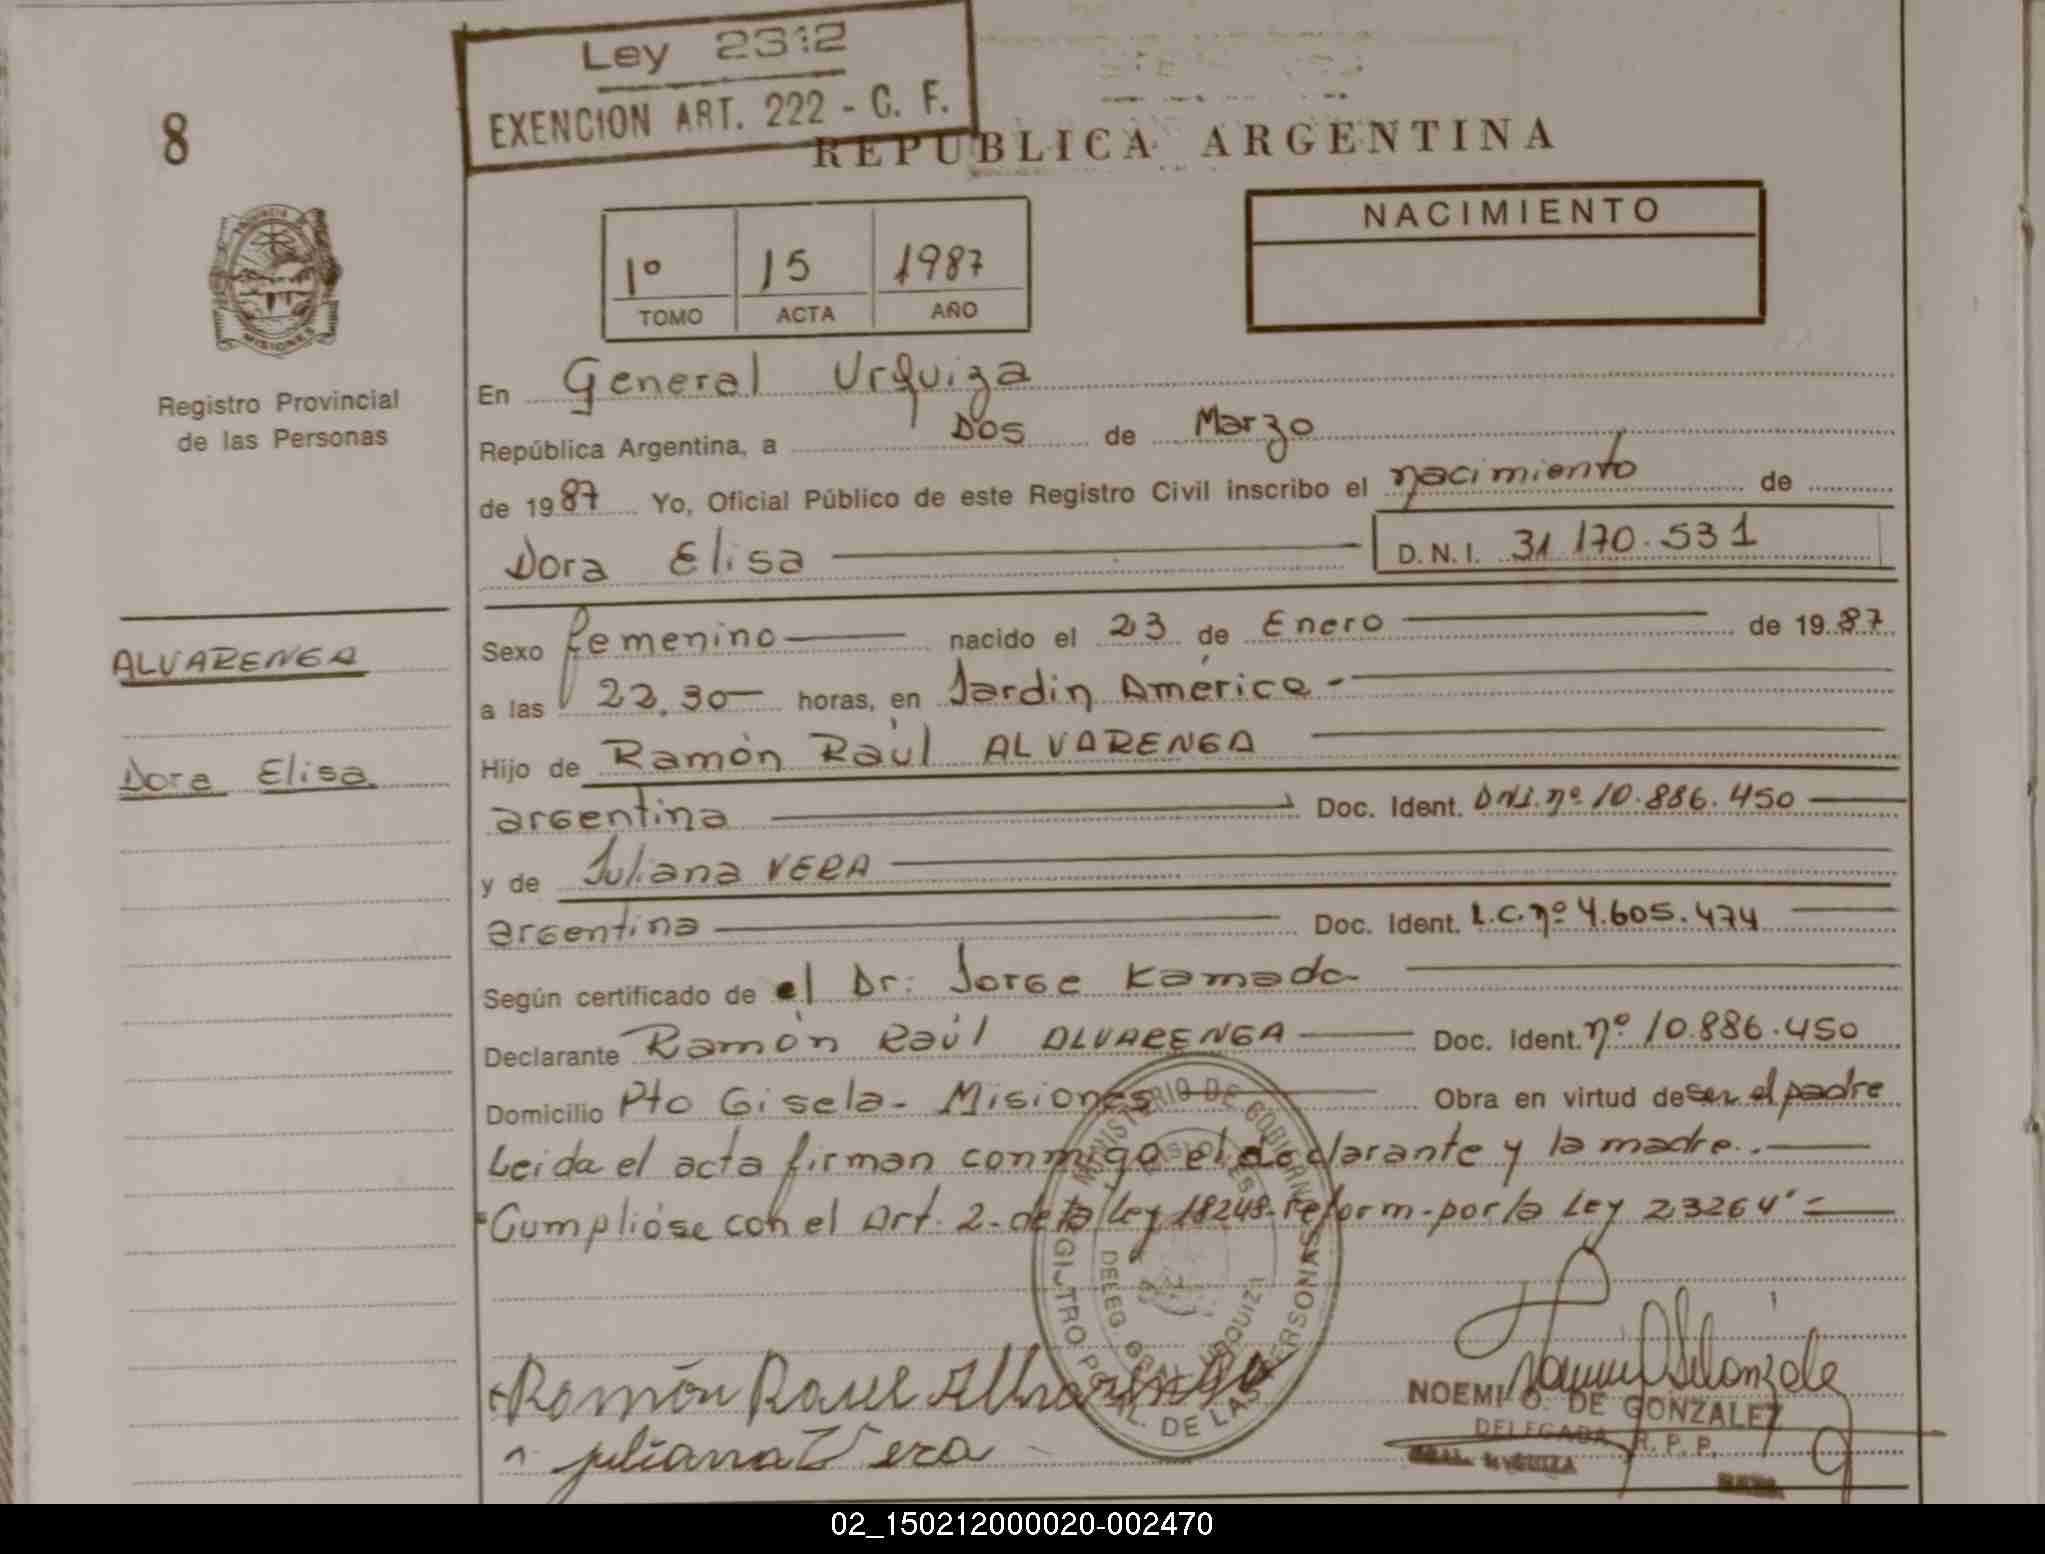 Ley 2312
EXENCION ART. 222 - C. F.
8
REPUBLICA ARGENTINA
NACIMIENTO
1º 15 1987
TOMO ACTA AÑO
MISIONES
Registro Provincial
de las Personas
En General Urquiza
República Argentina, a Dos de Marzo
de 1987 Yo, Oficial Público de este Registro Civil inscribo el nacimiento de
Dora Elisa D.N.I. 31 170.531
ALVARENGA
Dora Elisa
Sexo femenino nacido el 23 de Enero de 1987
a las 22.30 horas, en Jardin América
Hijo de Ramón Raúl ALVARENGA
argentina Doc. Ident. DNI. nº 10.886.450
y de Juliana VERA
argentina Doc. Ident. L.C. nº 4.605.474
Según certificado de el Dr: Jorge Kamada
Declarante Ramón Raúl ALVARENGA Doc. Ident. nº 10.886.450
Domicilio Pto Gisela - Misiones Obra en virtud de ser el padre
Leida el acta firman conmigo el declarante y la madre.
Cumplióse con el Art. 2 - de la Ley 18248 - reform - por la Ley 23264
MINISTERIO DE GOBIERNO
REGISTRO PCIAL. DE LAS PERSONAS
DELEG. GRAL. URQUIZA
Ramón Raul Alvarenga
juliana Vera
NOEMI O. DE GONZALEZ
DELEGADA R. P. P.
GRAL. URQUIZA
02_150212000020-002470